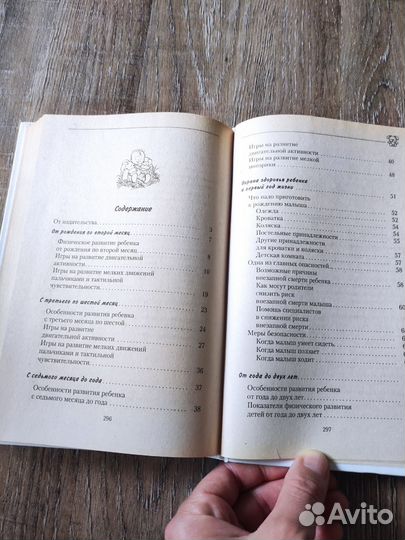 Содержание
От издательства 3
От рождения до второй месяц 7
Физическое развитие ребенка
от рождения по второй месяц 8
Игры на развитие двигательной
активности 10
Игры на развитие мелких движений
пальчиками и тактильной
чувствительности 19
С третьего по шестой месяц 23
Особенности развития ребенка
с третьего месяца по шестой 24
Игры на развитие
двигательной активности 27
Игры на развитие мелких движений
пальчиками и тактильной
чувствительности 36
С седьмого месяца до года 37
Особенности развития ребенка
с седьмого месяца до года 38
296
Игры на развитие
двигательной активности 40
Игры на развитие мелкой
моторики 48
Охрана здоровья ребенка
в первый год жизни 51
Что надо приготовить
к рождению малыша 52
Одежда 52
Кроватка 52
Коляска
Постельные принадлежности
Другие принадлежности
для кроватки и коляски
Детская комната 58
Одна из главных опасностей
Возможные причины
внезапной смерти ребенка 58
Как могут родители
снизить риск
внезапной смерти малыша
Помощь специалистов
в снижении риска
внезапной смерти
Меры безопасности
Когда малыш умеет сидеть
Когда малыш ползает
Когда малыш ходит
От года до двух лет
Особенности развития ребенка
от года до двух лет
Показатели физического развития
детей от года до двух лет
297
Avito